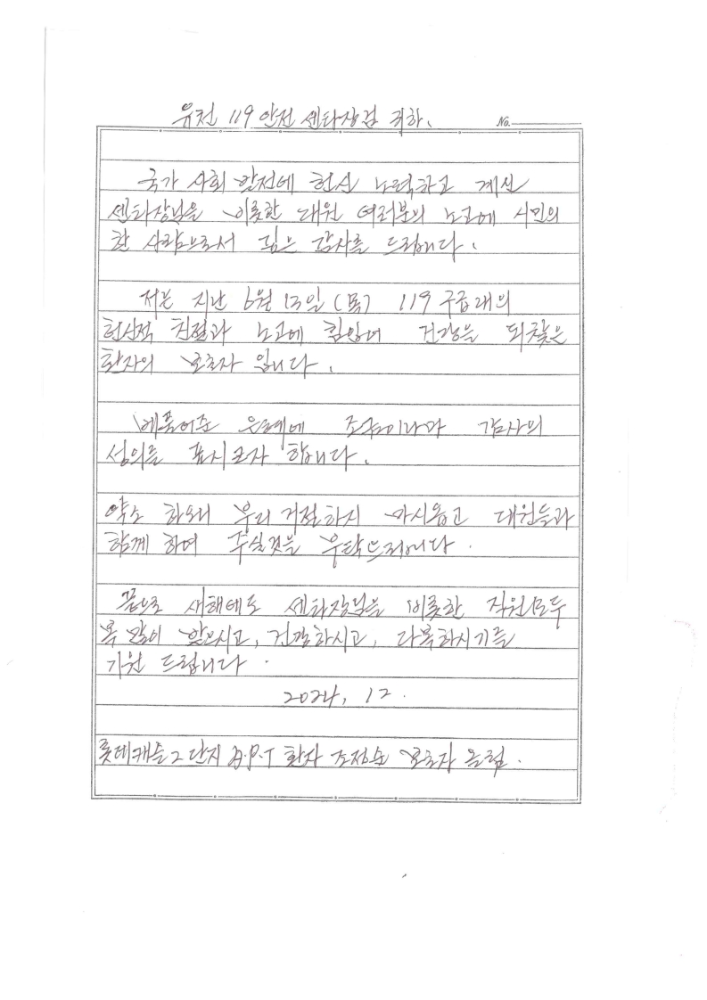 유천 119 안전 센타장님 귀하.
No.
국가 사회 안전에 헌신 노력하고 계신
센타장님을 비롯한 대원 여러분의 노고에 시민의
한 사람으로서 깊은 감사를 드립니다.
저는 지난 6월 13일 (목) 119 구급대의
헌신적 친절과 노고에 힘입어 건강을 되찾은
환자의 보호자 입니다.
베풀어준 은혜에 조금이나마 감사의
성의를 표시코자 합니다.
약소 하오니 부디 거절하지 마시옵고 대원들과
함께 하여 주실것을 부탁드리니다.
끝으로 새해에도 센타장님을 비롯한 직원모두
복 많이 받으시고, 건강하시고, 다복하시기를
기원 드립니다.
2024, 12.
롯데캐슬 2단지 A.P.T 환자 조정순 보호자 올림.